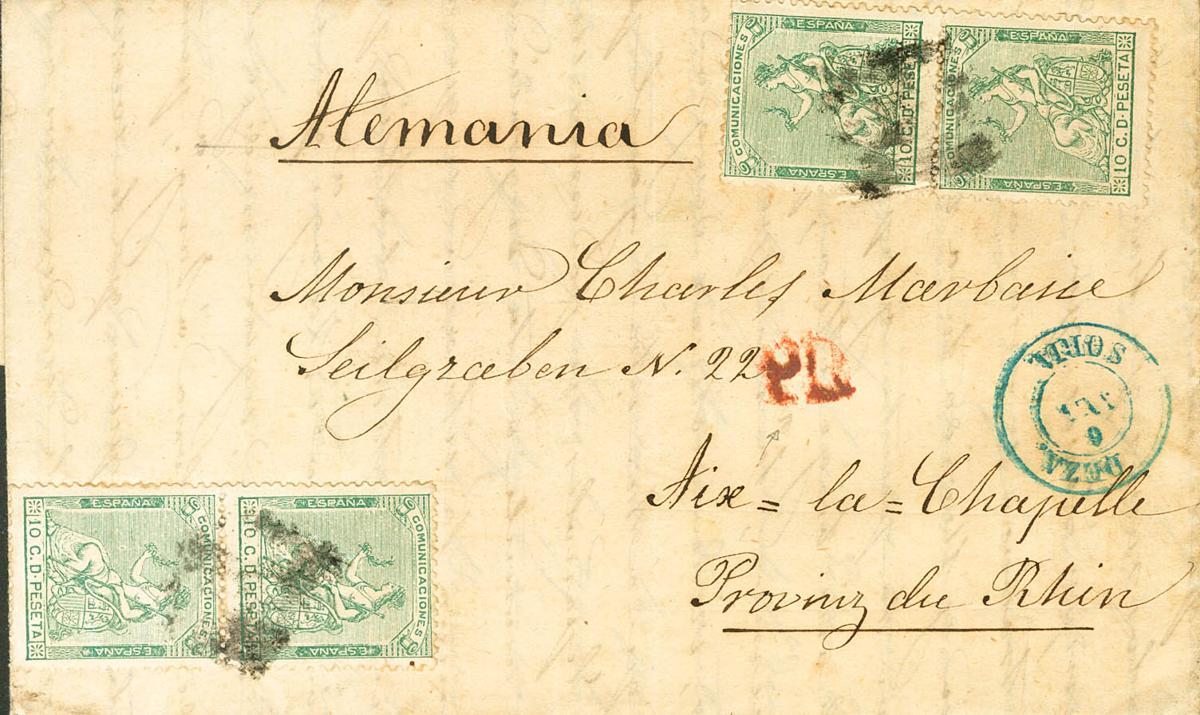 ESPAÑA
COMUNICACIONES
10 C. D. PESETA
ESPAÑA
ESPAÑA
COMUNICACIONES
10 C. D. PESETA
ESPAÑA
Alemania
Monsieur Charles Marbaise
Seilgraben N. 22
PD
SORIA
6
DEZA
Aix = la = Chapelle
Provinz du Rhin
ESPAÑA
10 C. D. PESETA
COMUNICACIONES
ESPAÑA
ESPAÑA
10 C. D. PESETA
COMUNICACIONES
ESPAÑA